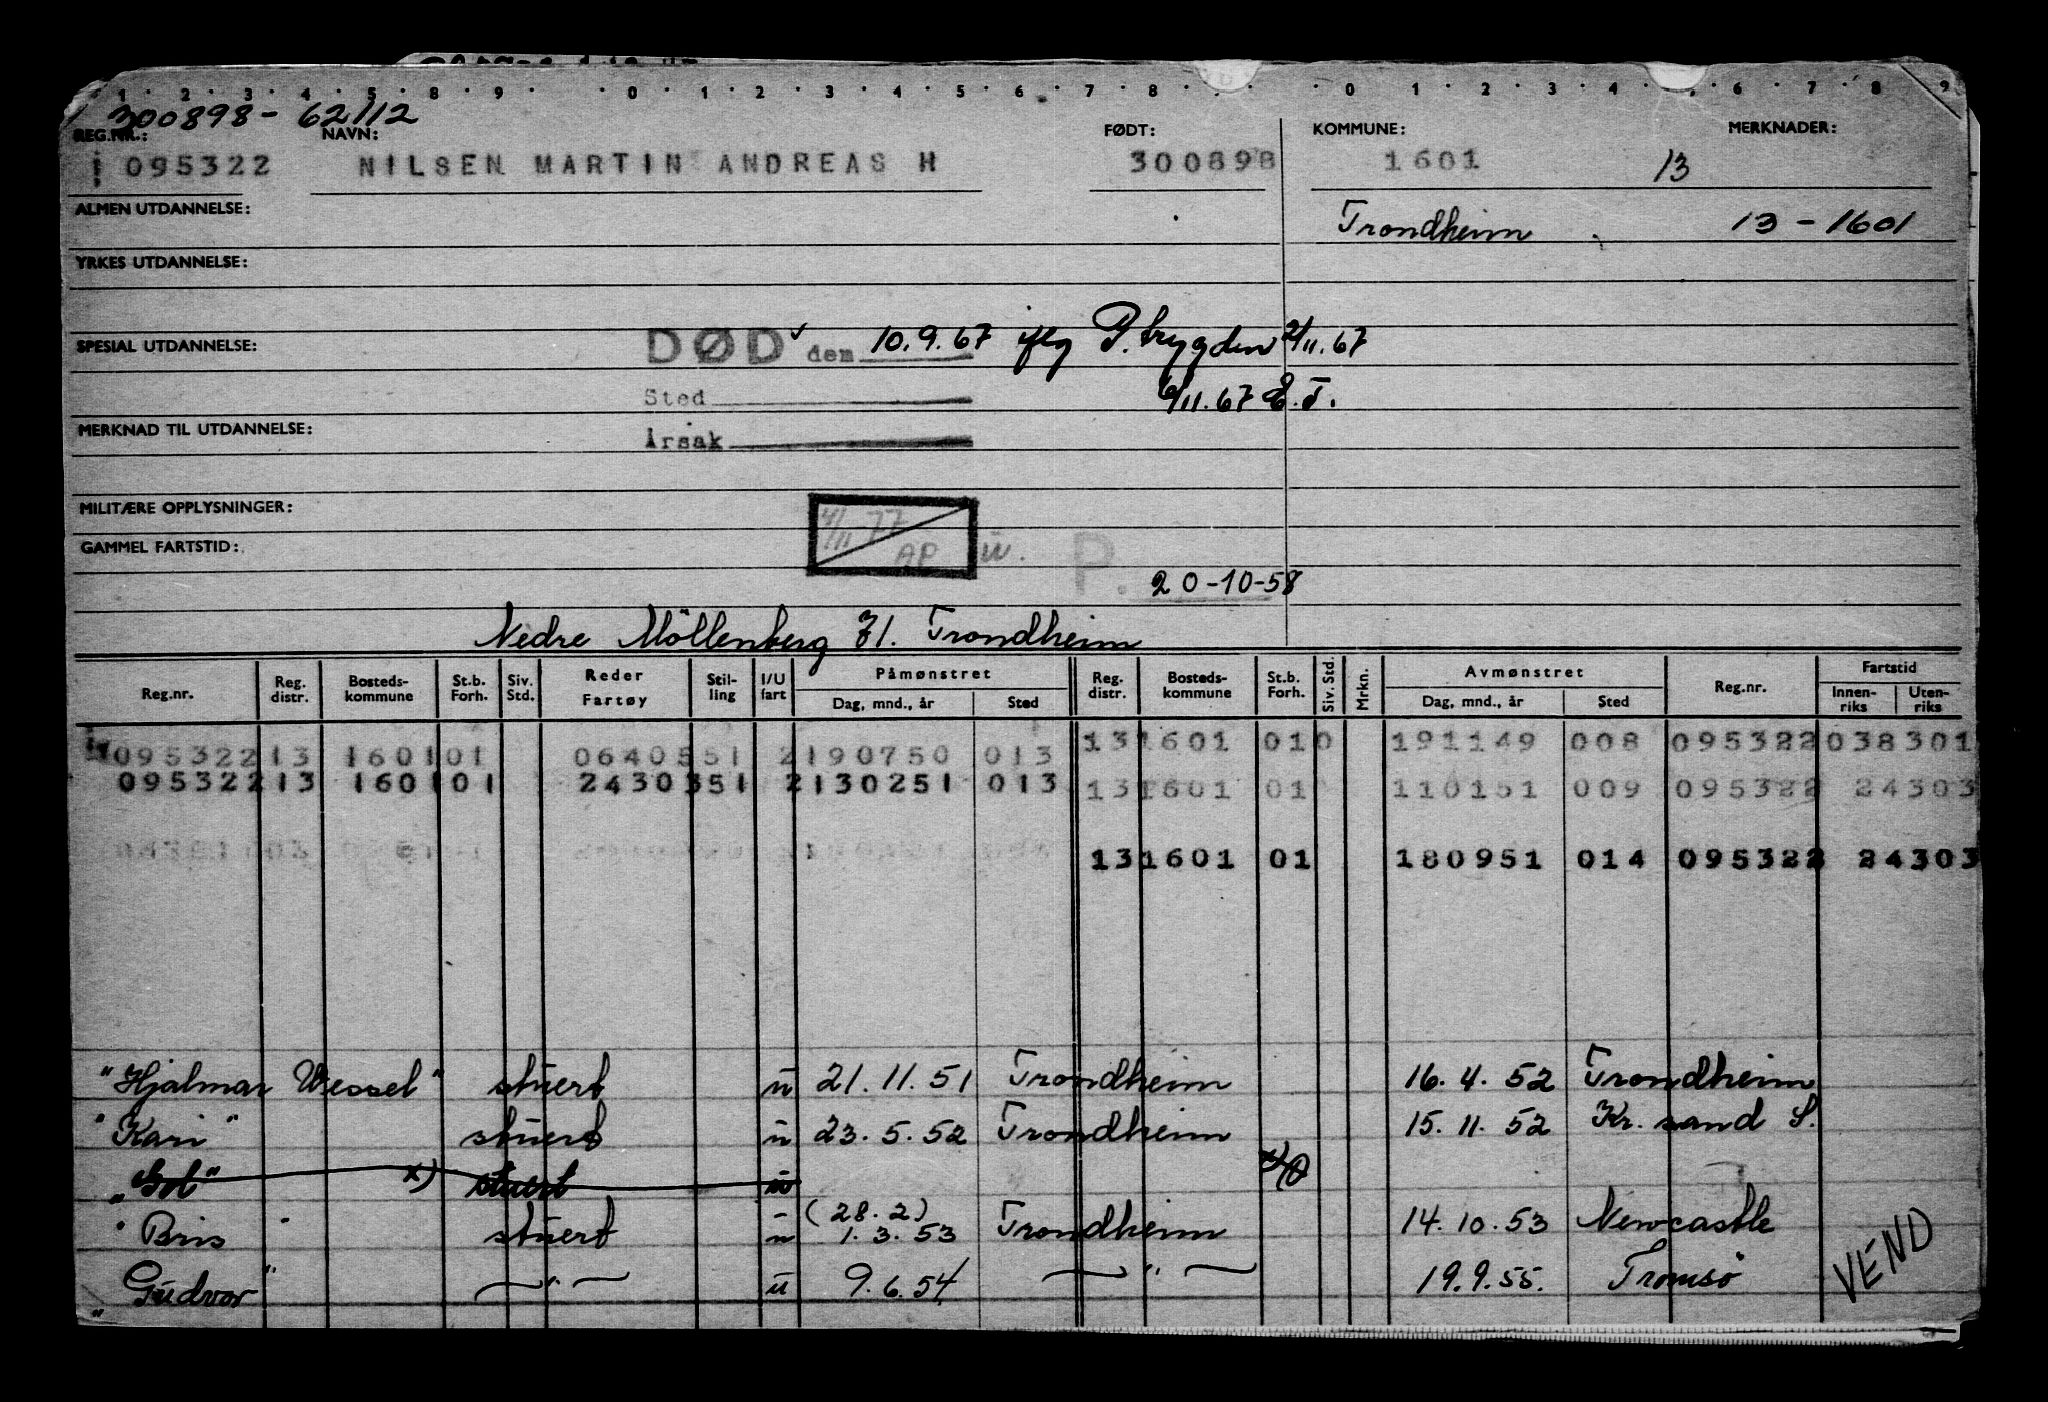 1 2 3 4 5 8 9 0 1 2 3 4 5 6 7 8 0 1 2 3 4 5 6 7 8 9
300898-62112
REG.NR.: NAVN: FØDT: KOMMUNE: MERKNADER:
095322 NILSEN MARTIN ANDREAS H 300898 1601 13
ALMEN UTDANNELSE: Trondheim 13-1601
YRKES UTDANNELSE:
SPESIAL UTDANNELSE: DØD den 10.9.67 iflg P.trygden 2/11.67
Sted 6/11.67 E.T.
MERKNAD TIL UTDANNELSE: Årsak
MILITÆRE OPPLYSNINGER: 4/11 77
GAMMEL FARTSTID: AP ü. P.
20-10-58
Nedre Möllenberg 71. Trondheim
Reg.nr. Reg. distr. Bosteds-kommune St.b. Forh. Siv. Std. Reder Fartøy Stil-ling I/U fart Påmønstret Dag, mnd., år Sted Reg. distr. Bosteds-kommune St.b. Forh. Siv. Std. Mrkn. Avmønstret Dag, mnd., år Sted Reg.nr. Fartstid Innen-riks Uten-riks
095322 13 1601 01 0640551 2 190750 013 13 1601 010 191149 008 095322 038301
095322 13 1601 01 2430351 2 130251 013 13 1601 01 110151 009 095322 24303
13 1601 01 180951 014 095322 24303
"Hjalmar Wessel" stuert ü 21.11.51 Trondheim 16.4.52 Trondheim
"Kari" stuert ü 23.5.52 Trondheim 15.11.52 Kr.sand S.
x) stuert ü
"Bris" stuert ü (28.2) 1.3.53 Trondheim 14.10.53 Newcastle
"Gudvor" —"— ü 9.6.54 —"— 19.9.55. Tromsø
VEND